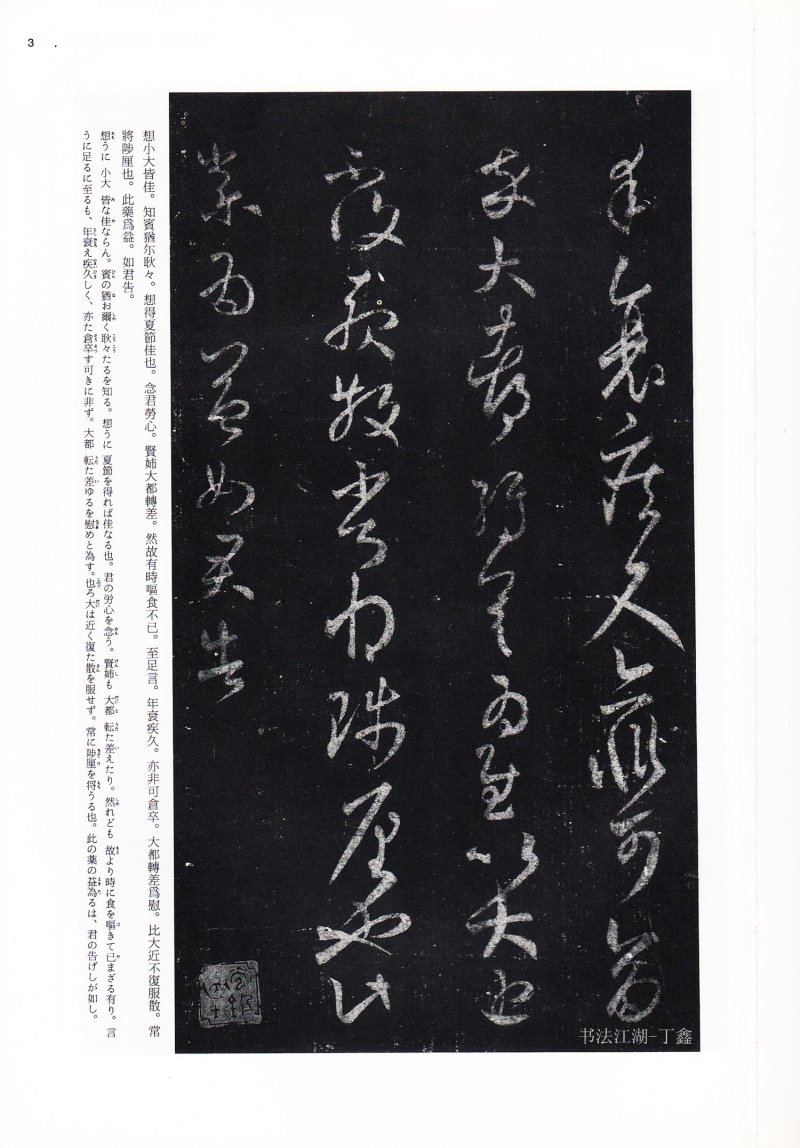 3
年衰疾久亦非可倉
卒大都轉差為慰比大近
不復服散常將陟厘也此
藥為益如君告
想小大皆佳。知賓猶尓耿々。想得夏節佳也。念君勞心。賢姉大都轉差。然故有時嘔食不已。至足言。年衰疾久。亦非可倉卒。大都轉差爲慰。比大近不復服散。常
將陟厘也。此藥爲益。如君告。
想うに 小大 皆な佳ならん。賓の猶お爾く耿々たるを知る。想うに 夏節を得れば佳なる也。君の労心を念う。賢姉も 大都 転た差えたり。然れども 故より時に食を嘔きて已まざる有り。言
うに足るに至るも、年衰え疾久しく、亦た倉卒す可きに非ず。大都 転た差ゆるを慰めと為す。也ろ大は近く復た散を服せず。常に陟厘を将うる也。此の薬の益為るは、君の告げしが如し。
书法江湖-丁鑫